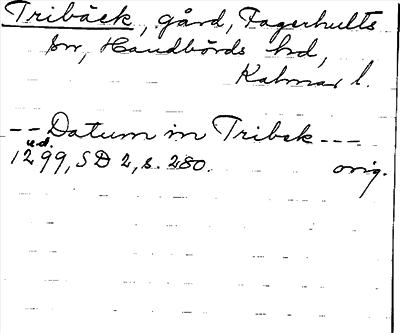 Tribäck, gård, Fagerhults
sn, Handbörds hd,
Kalmar l.
-- Datum in Tribek ---
u.d.
1299, SD 2, s. 280. orig.